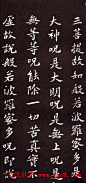 三菩提故知般若波羅蜜多是
大神呪是大明呪是無上呪是
無等等呪能除一切苦真實不
虛故說般若波羅蜜多呪即說